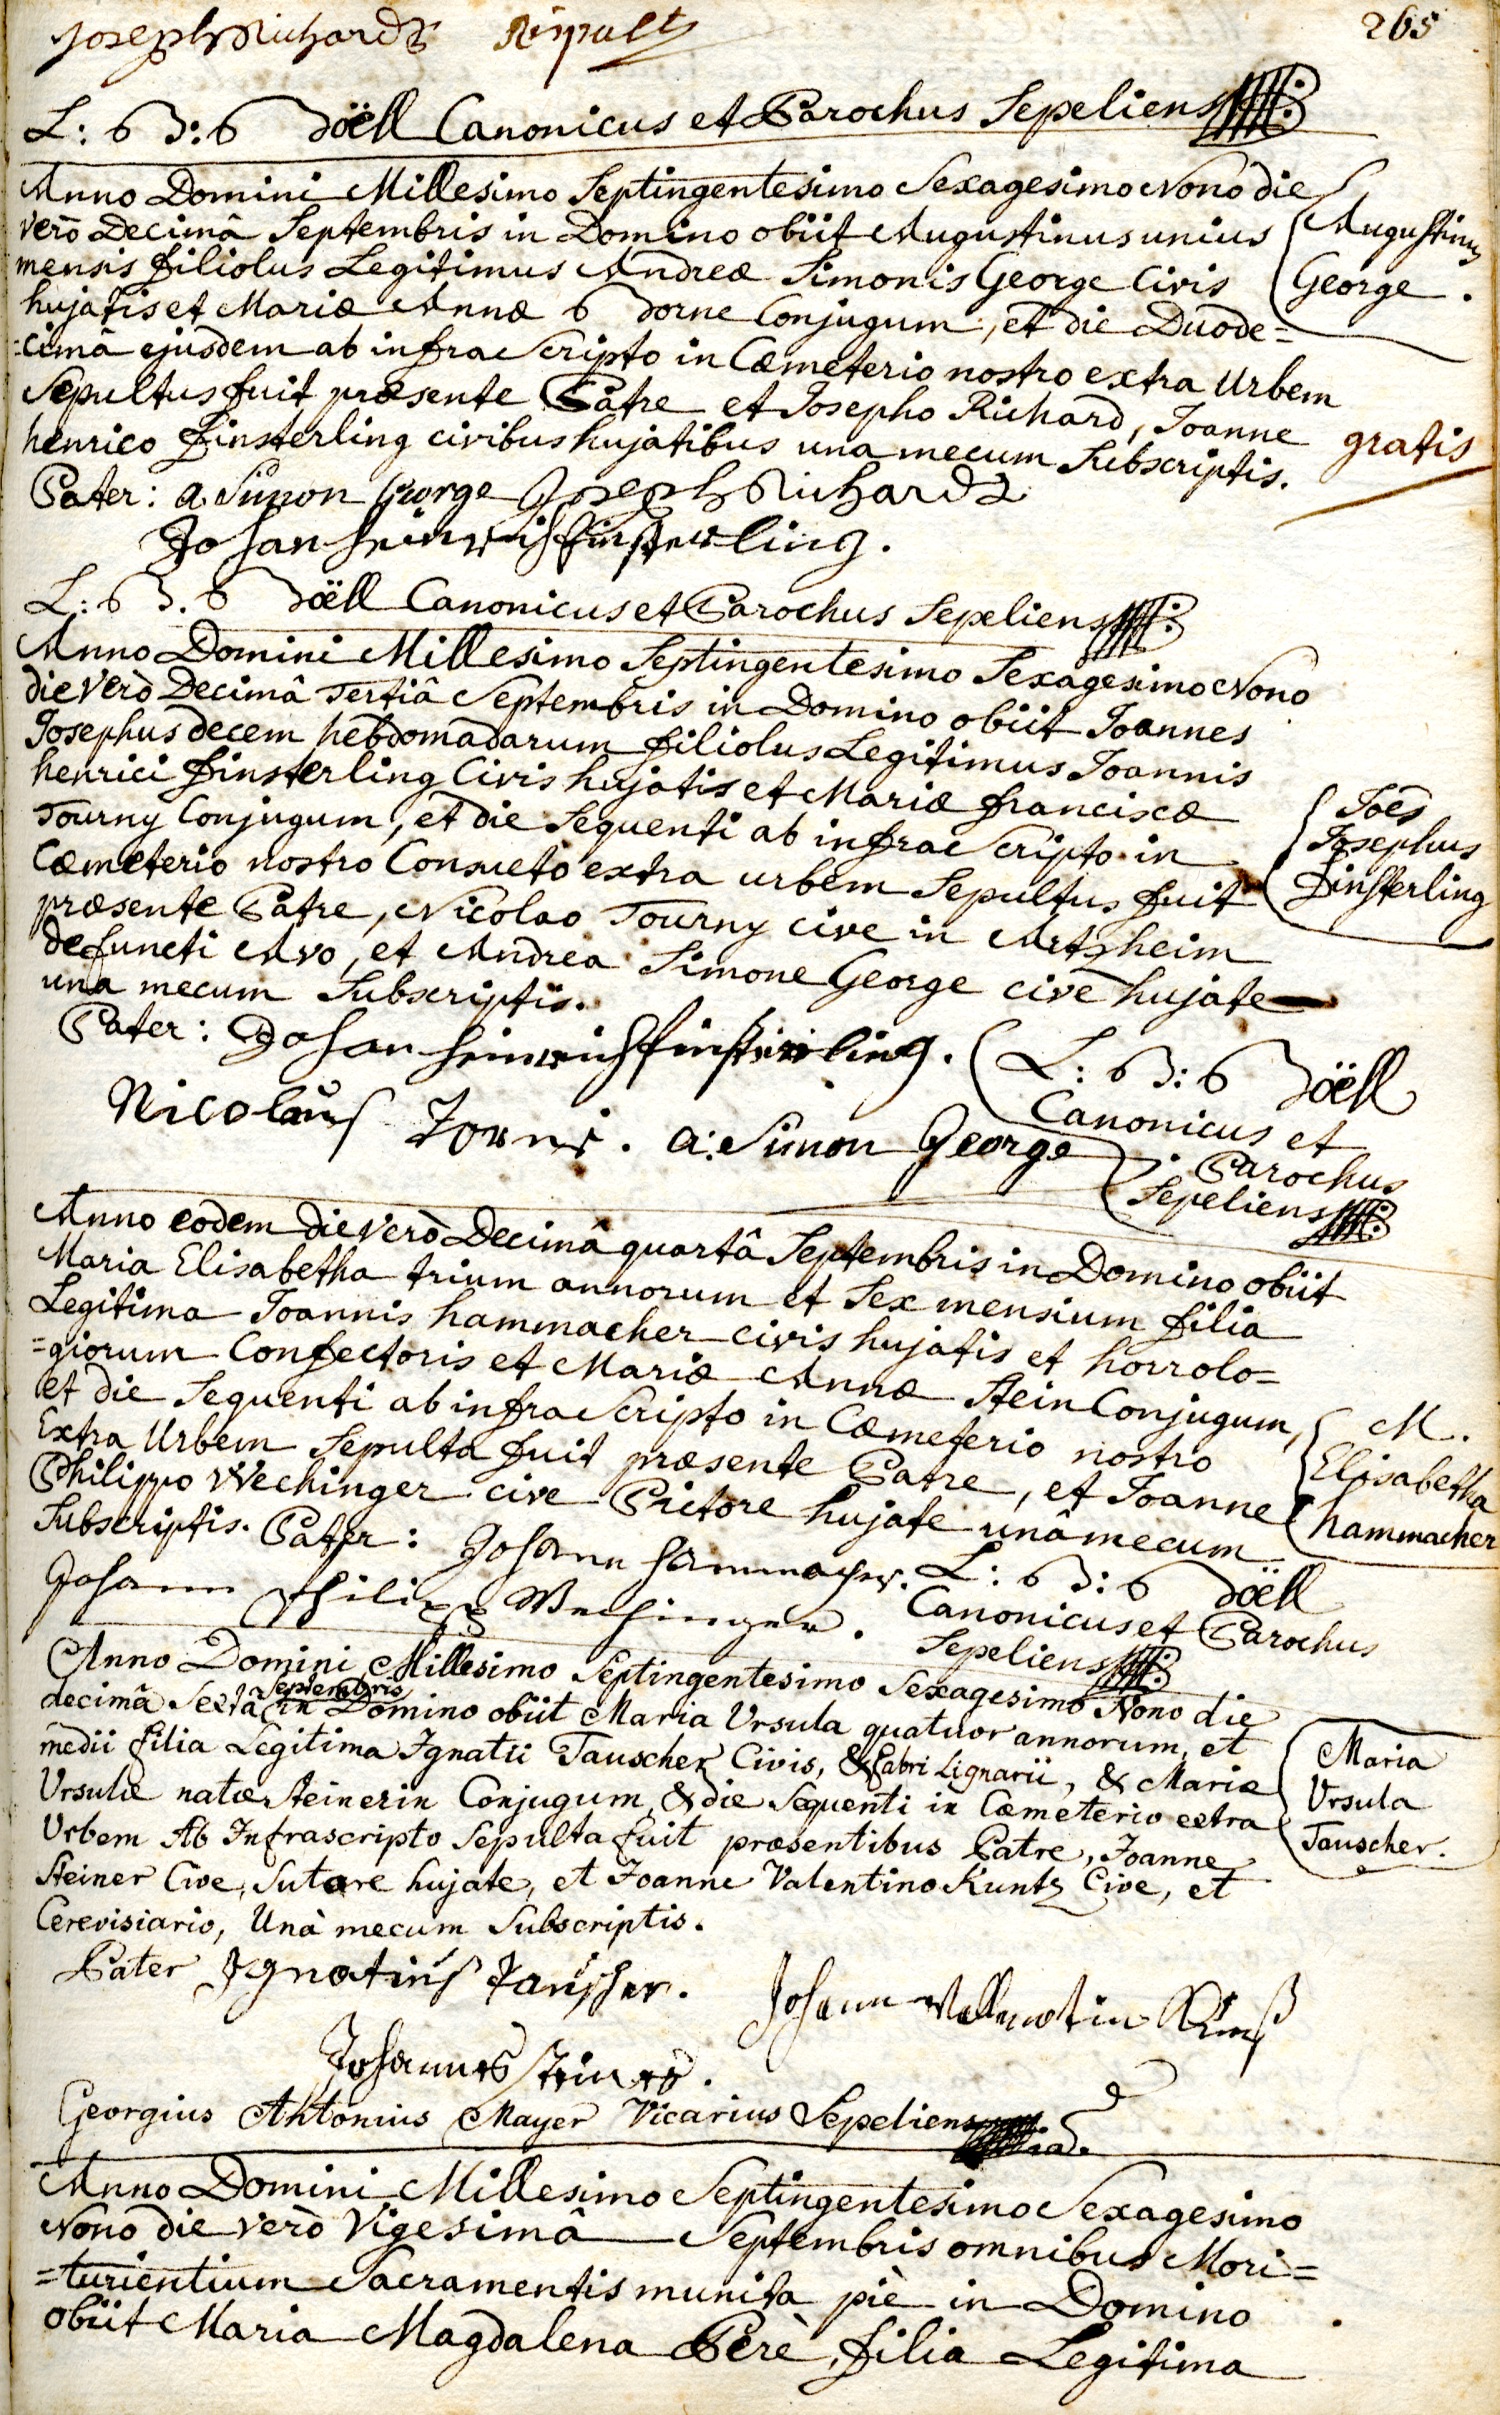 Joseph Richardt
265
L: B: Boëll Canonicus et Parochus Sepeliens
Anno Domini Millesimo Septingentesimo Sexagesimo Nono die
verò Decimâ Septembris in Domino obiit Augustinus unius
mensis filiolus Legitimus Andreæ Simonis George Civis
hujatis et Mariæ Annæ Borne Conjugum, et die Duode=
=cimâ ejusdem ab infra Scripto in Cæmeterio nostro extra Urbem
Sepultus fuit præsente Patre et Josepho Richard, Joanne
henrico finsterling civibus hujatibus una mecum Subscriptis.
Augustinus
George.
gratis
Pater: a. Simon George Joseph Richardt
Johan heinrich finsterling.
L: B. Boëll Canonicus et Parochus Sepeliens
Anno Domini Millesimo Septingentesimo Sexagesimo Nono
die verò Decimâ Tertiâ Septembris in Domino obiit Joannes
Josephus decem hebdomadarum filiolus Legitimus Joannis
henrici finsterling Civis hujatis et Mariæ franciscæ
Tourny Conjugum, et die Sequenti ab infra Scripto in
Cæmeterio nostro Consueto extra urbem Sepultus fuit
præsente Patre, Nicolao Tourny cive in Artzheim
defuncti Avo, et Andrea Simone George cive hujate
una mecum Subscriptis.
Joēs
Josephus
Finsterling
Pater: Johan heinrich finsterling.
Nicolaus Torni. a: Simon George
L: B: Boëll
Canonicus et
Parochus
Sepeliens
Anno eodem die verò Decimâ quartâ Septembris in Domino obiit
Maria Elisabetha trium annorum et Sex mensium filia
Legitima Joannis hammacher civis hujatis et horrolo=
=giorum Confectoris et Mariæ Annæ Stein Conjugum,
et die Sequenti ab infra Scripto in Cæmeterio nostro
Extra Urbem Sepulta fuit præsente Patre, et Joanne
Philippo Wechinger cive Pictore hujate unâ mecum
Subscriptis. Pater: Johann hammacher.
M.
Elisabetha
hammacher
Johann Philipp Wechinger.
L: B: Boëll
Canonicus et Parochus
Sepeliens
Anno Domini Millesimo Septingentesimo Sexagesimo Nono die
decimâ Sextâ Septembris in Domino obiit Maria Ursula quatuor annorum, et
medii filia Legitima Ignatii Tauscher Civis, & fabri Lignarii, & Mariæ
Ursulæ natæ Steinerin Conjugum, & die Sequenti in Cæmeterio extra
Urbem Ab Infrascripto Sepulta fuit præsentibus Patre, Joanne
Steiner Cive, Sutore hujate, et Joanne Valentino Kuntz Cive, et
Cerevisiario, Unà mecum Subscriptis.
Maria
Ursula
Tauscher.
Pater Ignatius Tauscher.
Johannes Steiner.
Georgius Antonius Mayer Vicarius Sepeliens
Anno Domini Millesimo Septingentesimo Sexagesimo
Nono die verò Vigesimâ Septembris omnibus Mori=
=turientium Sacramentis munita piè in Domino
obiit Maria Magdalena Perè, filia Legitima